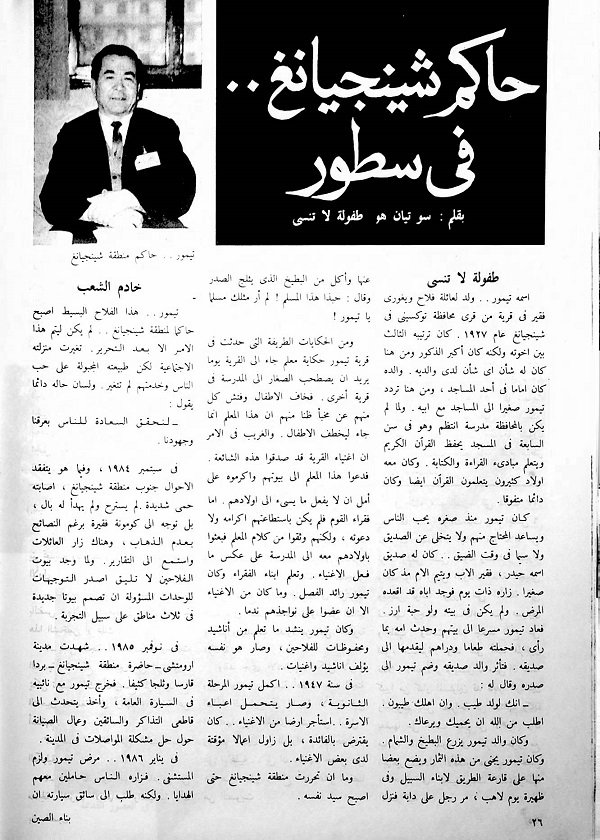 حاكم شينجيانغ . .
فى سطور
بقلم : سو تيان هو طفولة لا تنسى
تيمور . . حاكم منطقة شينجيانغ
طفولة لا تنسى
اسمه تيمور . . ولد لعائلة فلاح ويغورى
فقير فى قرية من قرى محافظة توكسينى فى
شينجيانغ عام ١٩٢٧ . كان ترتيبه الثالث
بين اخوته ولكنه كان أكبر الذكور ومن هنا
كان له شأن اى شأن لدى والديه . والده
كان اماما فى أحد المساجد ، ومن هنا تردد
تيمور صغيرا الى المساجد مع ابيه . ولما لم
يكن بالمحافظة مدرسة انتظم وهو فى سن
السابعة فى المسجد يحفظ القرآن الكريم
ويتعلم مبادىء القراءة والكتابة . وكان معه
اولاد كثيرون يتعلمون القرآن ايضا وكان
دائما متفوقا .
كـان تيمور منذ صغره يحب الناس
ويساعد المحتاج منهم ولا يتخلى عن الصديق
ولا سيما فى وقت الضيق . . كان له صديق
اسمه حيدر ، فقير الاب ويتيم الام مذ كان
صغيرا . زاره ذات يوم فوجد اباه قد اقعده
المرض . ولم يكن فى بيته ولو حبة ارز .
فعاد تيمور مسرعا الى بيتهم وحدث امه بما
رأى ، فحملته طعاما ودراهم ليقدمها الى
صديقه . فتأثر والد صديقه وضم تيمور الى
صدره وقال له :
ـ انك لولد طيب . وان اهلك طيبون .
اطلب من الله ان يحميك ويرعاك .
وكان والد تيمور يزرع البطيخ والشمام .
وكان تيمور يجنى من هذه الثمار ويضع بعضا
منها على قارعة الطريق لابناء السبيل وفى
ظهيرة يوم لاهب ، مر رجل على دابة فنزل
عنها وأكل من البطيخ الذى يثلج الصدر
وقال : حبذا هذا المسلم ! لم أر مثلك مسلما
يا تيمور !
ومن الحكايات الطريفة التى حدثت فى
قرية تيمور حكاية معلم جاء الى القرية يوما
يريد ان يصطحب الصغار الى المدرسة فى
قرية أخرى . فخاف الاطفال وفتش كل
منهم عن مخبأ ظنا منهم ان هذا المعلم انما
جاء ليخطف الاطفال . والغريب فى الامر
ان اغنياء القرية قد صدقوا هذه الشائعة .
فدعوا هذا المعلم الى بيوتهم واكرموه على
أمل ان لا يفعل ما يسىء الى اولادهم . اما
فقراء القوم فلم يكن باستطاعتهم اكرامه ولا
دعوته ، ولكنهم وثقوا من كلام المعلم فبعثوا
باولادهم معه الى المدرسة على عكس ما
فعل الاغنياء . وتعلم ابناء الفقراء وكان
تيمور رائد الفصل . وما كان من الاغنياء
الا ان عضوا على نواجذهم ندما .
وكان تيمور ينشد ما تعلم من أناشيد
ومحفوظات للفلاحين ، وصار هو نفسه
يؤلف اناشيد واغنيات .
فى سنة ١٩٤٧ . . اكمل تيمور المرحلة
الثـانـويـة ، وصـار يتحمـل اعبـاء
الاسرة . . استأجر ارضا من الاغنياء . . كان
يقترض بالفائدة ، بل زاول اعمالا مؤقتة
لدى بعض الاغنياء .
وما ان تحررت منطقة شينجيانغ حتى
اصبح سيد نفسه .
خادم الشعب
تيمور . . هذا الفلاح البسيط اصبح
حاكما لمنطقة شينجيانغ . . لم يكن ليتم هذا
الامر الا بـعـد التحرير . تغيرت منزلته
الاجتماعية لكن طبيعته المجبولة على حب
الناس وخدمتهم لم تتغير . ولسان حاله دائما
يقول :
ـ لـنـحـقـق السـعـادة للـنـاس بعرقنا
وجهودنا .
فى سبتمبر ١٩٨٤ ، وفيما هو يتفقد
الاحوال جنوب منطقة شينجيانغ ، اصابته
حمى شديدة . لم يسترح ولم يهدأ له بال ،
بل توجه الى كومونة فقيرة برغم النصائح
بعـدم الذهـاب ، وهناك زار العائلات
واستمـع الى التقارير . ولما وجد بيوت
الفلاحين لا تـليـق اصدر التـوجيهـات
للوحدات المسؤولة ان تصمم بيوتا جديدة
فى ثلاث مناطق على سبيل التجربة .
فى نوفمبر ١٩٨٥ . . شهـدت مدينة
ارومتشى ـ حاضرة منطقة شينجيانغ ـ بردا
قارسا وثلجا كثيفا . فخرج تيمور مع نائبيه
فى السيارة العامة ، وأخذ يتحدث الى
قاطعى التذاكر والسائقين وعمال الصيانة
حول حل مشكلة المواصلات فى المدينة .
فى يناير ١٩٨٦ . . مرض تيمور ولزم
المستشفى . فـزاره النـاس حاملين معهم
الهدايا . ولكنه طلب الى سائق سيارته ان
٢٦
بناء الصين